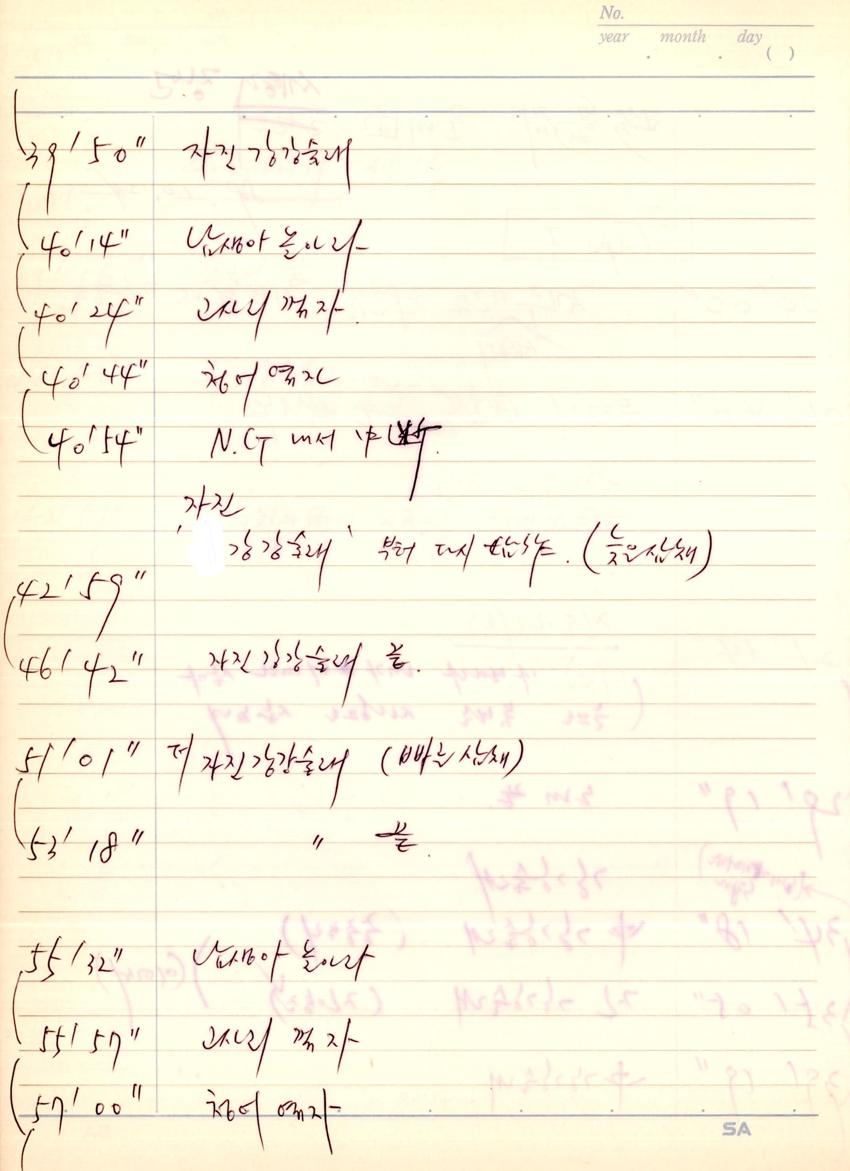 No.
year month day
( )
39' 50" 자진 강강술래
40' 14" 남생아 놀아라
40' 24" 고사리 꺾자
40' 44" 청어 엮자
40' 54" N.G 내서
자진
' 강강술래 ' 부터 다시 (늦은삼채)
42' 59"
46' 42" 자진 강강술래 끝.
51' 01" 자진강강술래 (빠른 삼채)
53' 18" " 끝.
55' 32" 남생아 놀아라
55' 57" 고사리 꺾자
57' 00" 청어 엮자
SA